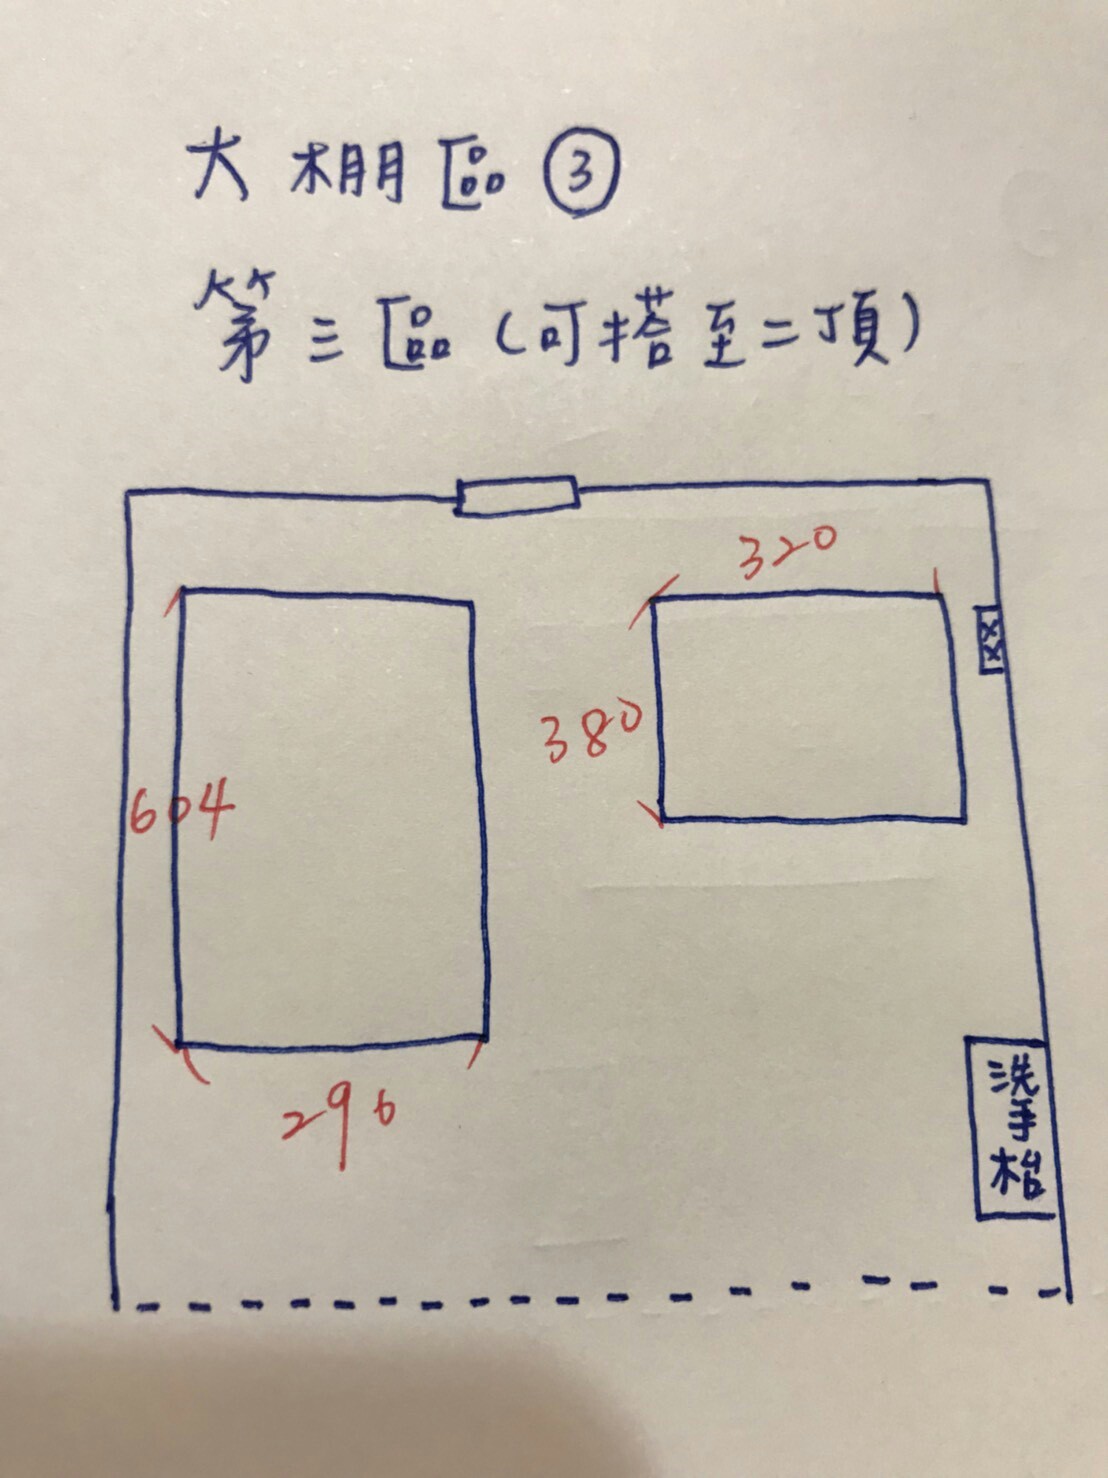 大棚區③
第三區(可搭至二頂)
320
380
604
296
洗手枱